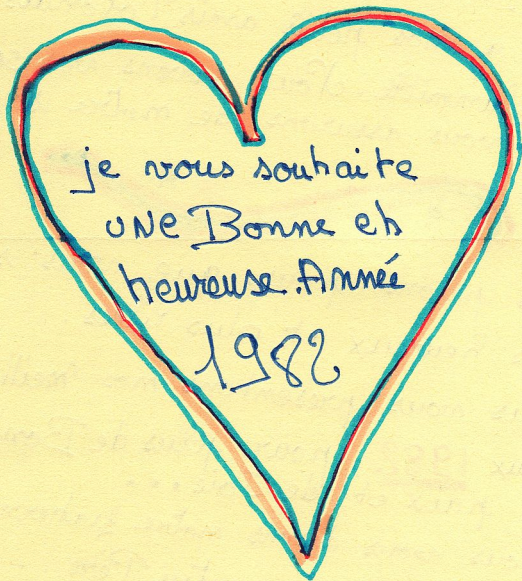 je vous souhaite
UNe Bonne et
heureuse. Année
1982